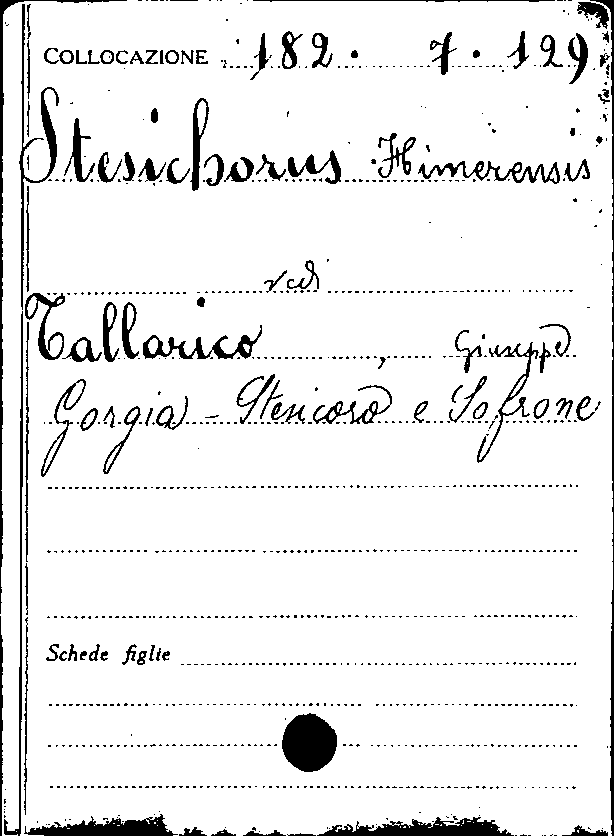 COLLOCAZIONE 182. 7. 129
Stesichorus Himerensis
vedi
Tallarico, Giuseppe
Gorgia - Stesicoro e Sofrone
Schede figlie